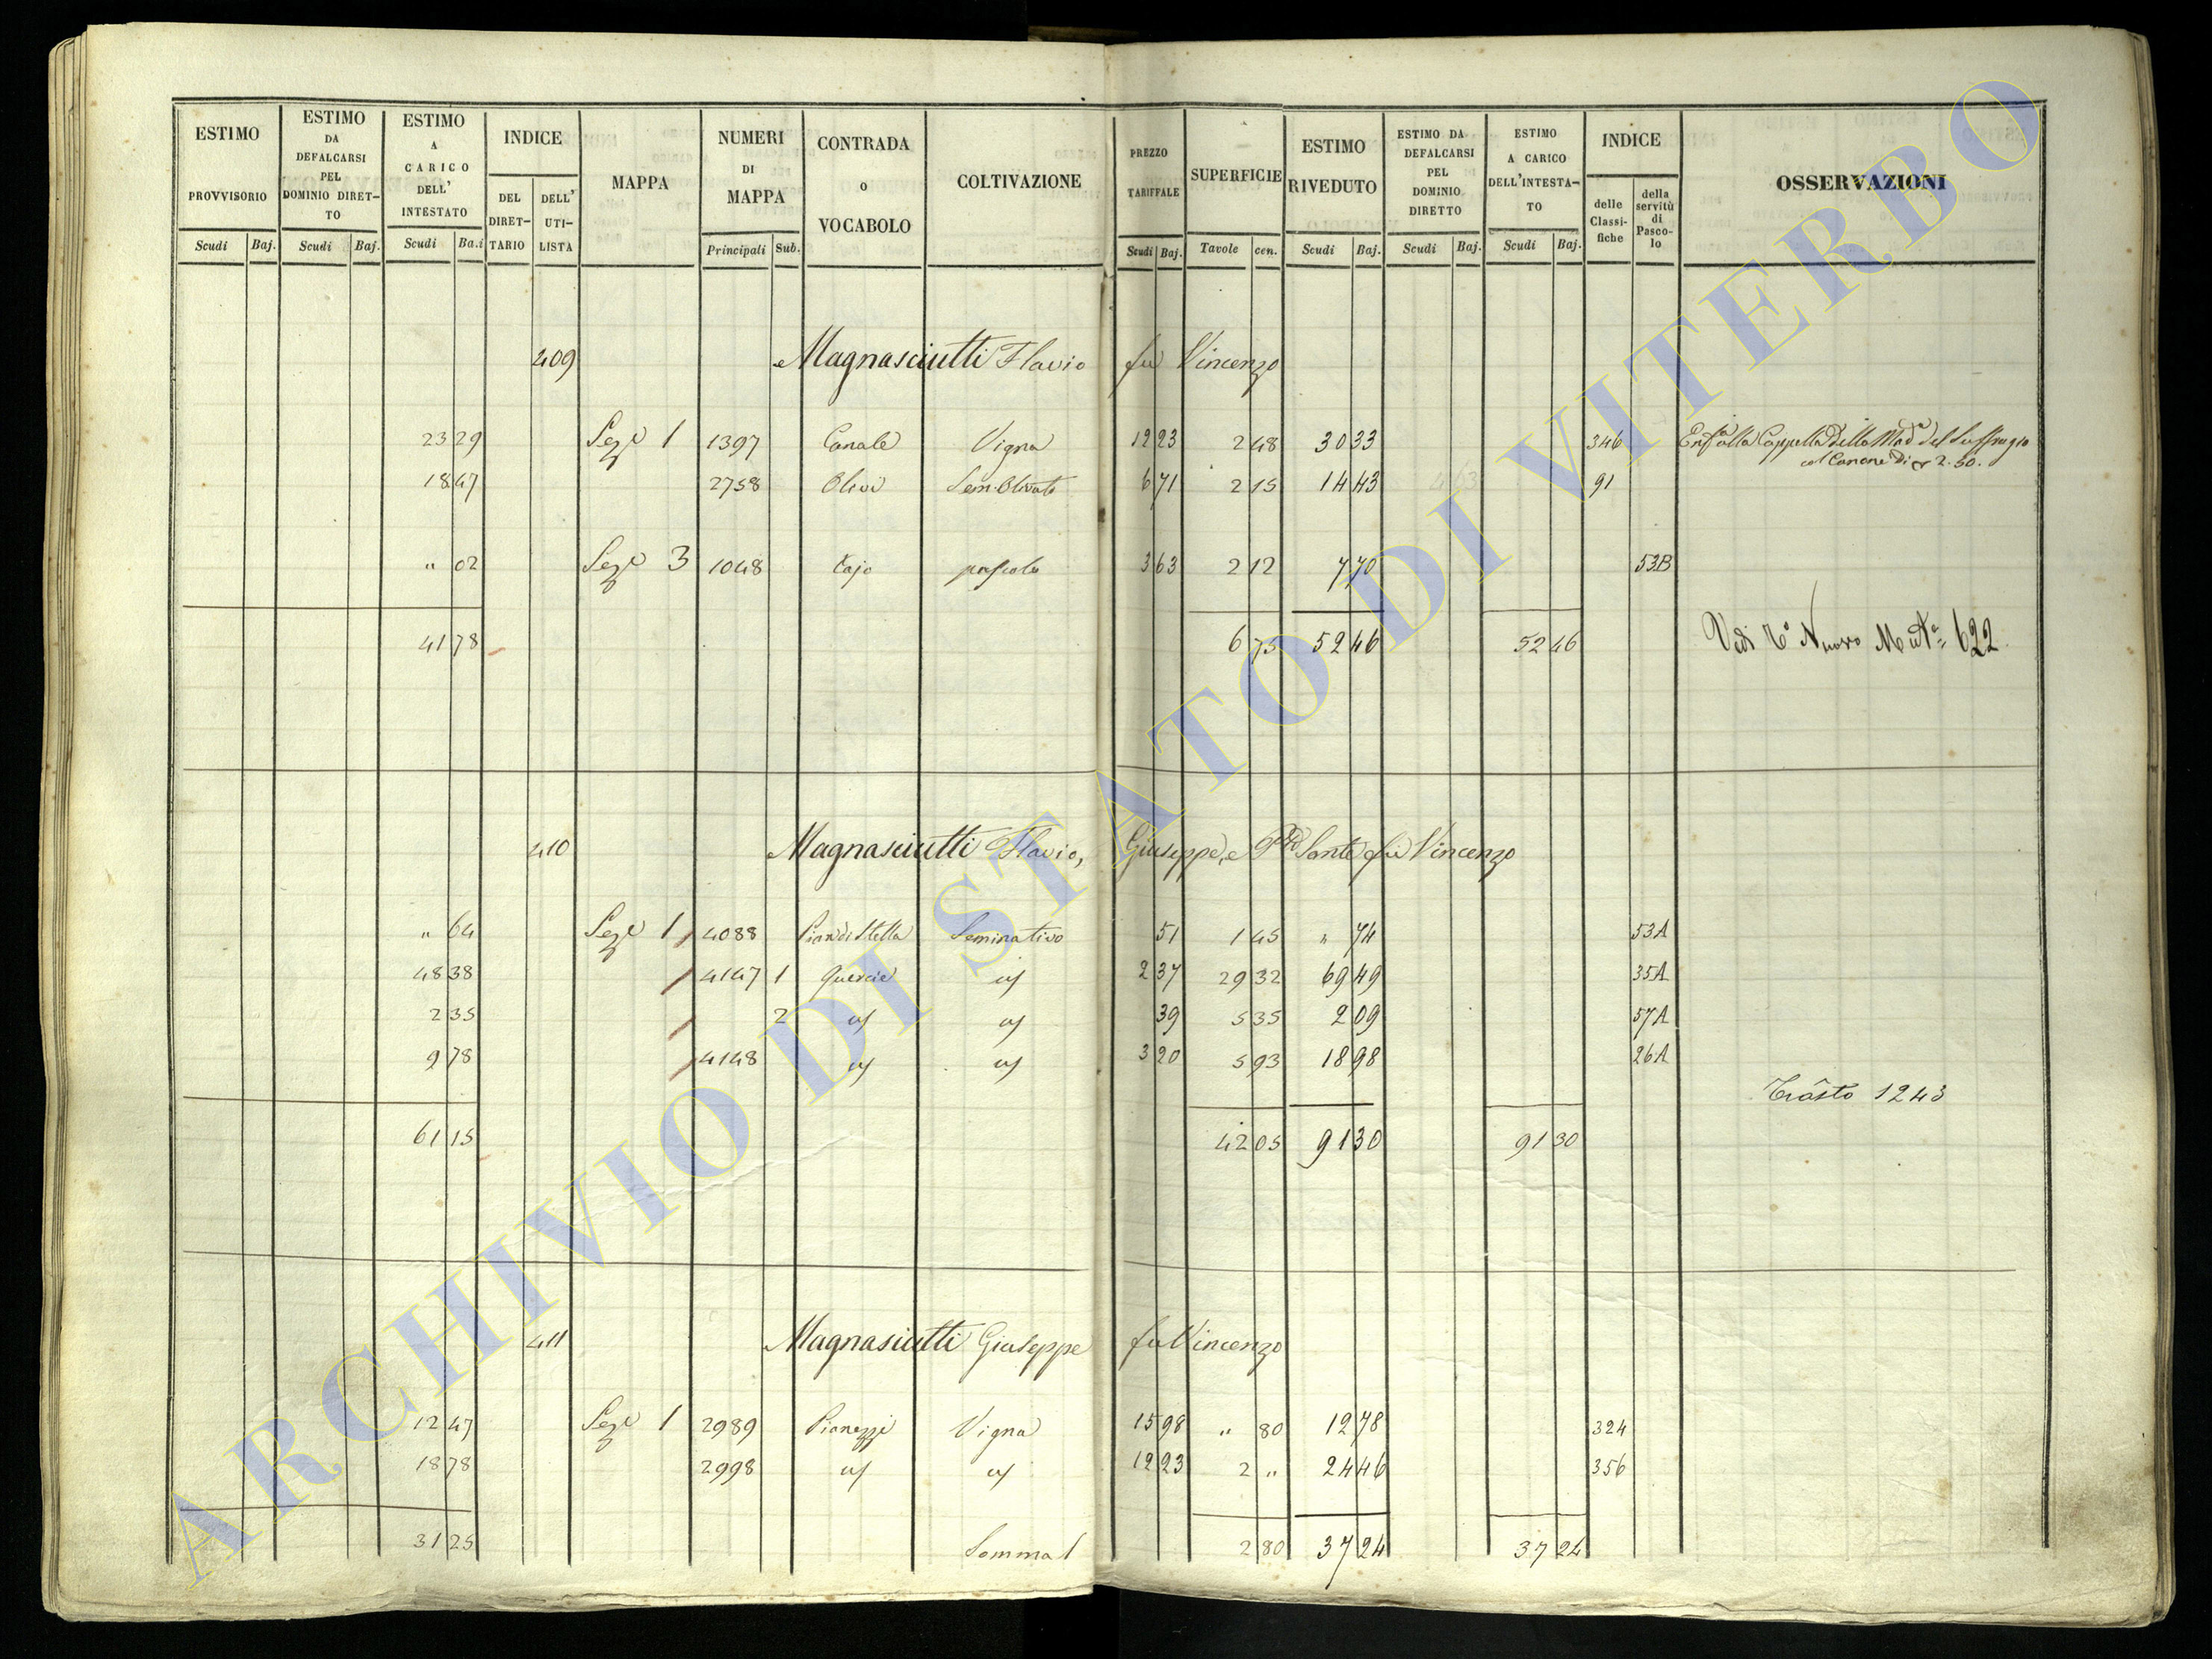 ESTIMO PROVVISORIO Scudi Baj.
ESTIMO DA DEFALCARSI PEL DOMINIO DIRET-TO Scudi Baj.
ESTIMO A CARICO DELL' INTESTATO Scudi Ba.i
INDICE DEL DIRET-TARIO DELL' UTI-LISTA
MAPPA
NUMERI DI MAPPA Principali Sub.
CONTRADA O VOCABOLO
COLTIVAZIONE
PREZZO TARIFFALE Scudi Baj.
SUPERFICIE Tavole cen.
ESTIMO RIVEDUTO Scudi Baj.
ESTIMO DA DEFALCARSI PEL DOMINIO DIRETTO Scudi Baj.
ESTIMO A CARICO DELL'INTESTA-TO Scudi Baj.
INDICE delle Classi-fiche della servitù di Pasco-lo
OSSERVAZIONI
409 Magnasciutti Flavio fu Vincenzo
23 29 Sez.e 1 1397 Canale Vigna 12 23 2 48 30 33 346 alla Cappella della Mad.a del Suffragio
col Canone di 2.50.
18 47 2758 Olivi Sem. Olivato 6 71 2 15 14 43 91
" 02 Sez.e 3 1048 pascolo 3 63 2 12 7 70 53B
41 78 6 75 52 46 52 46 Vedi Nuovo 622
410 Magnasciutti Flavio, Giuseppe, e Sante fu Vincenzo
" 64 Sez.e 1 4088 Pian di Stella Seminativo 51 1 45 " 74 53A
48 38 4147 1 Quercie id 2 37 29 32 69 49 35A
2 35 2 id id 39 5 35 2 09 57A
9 78 4148 id id 3 20 5 93 18 98 26A
Trâsto 1243
61 15 42 05 91 30 91 30
411 Magnasciutti Giuseppe fu Vincenzo
12 47 Sez.e 1 2989 Pianezzi Vigna 15 98 " 80 12 78 324
18 78 2998 id id 12 23 2 " 24 46 356
31 25 Somma 2 80 37 24 37 24
ARCHIVIO DI STATO DI VITERBO